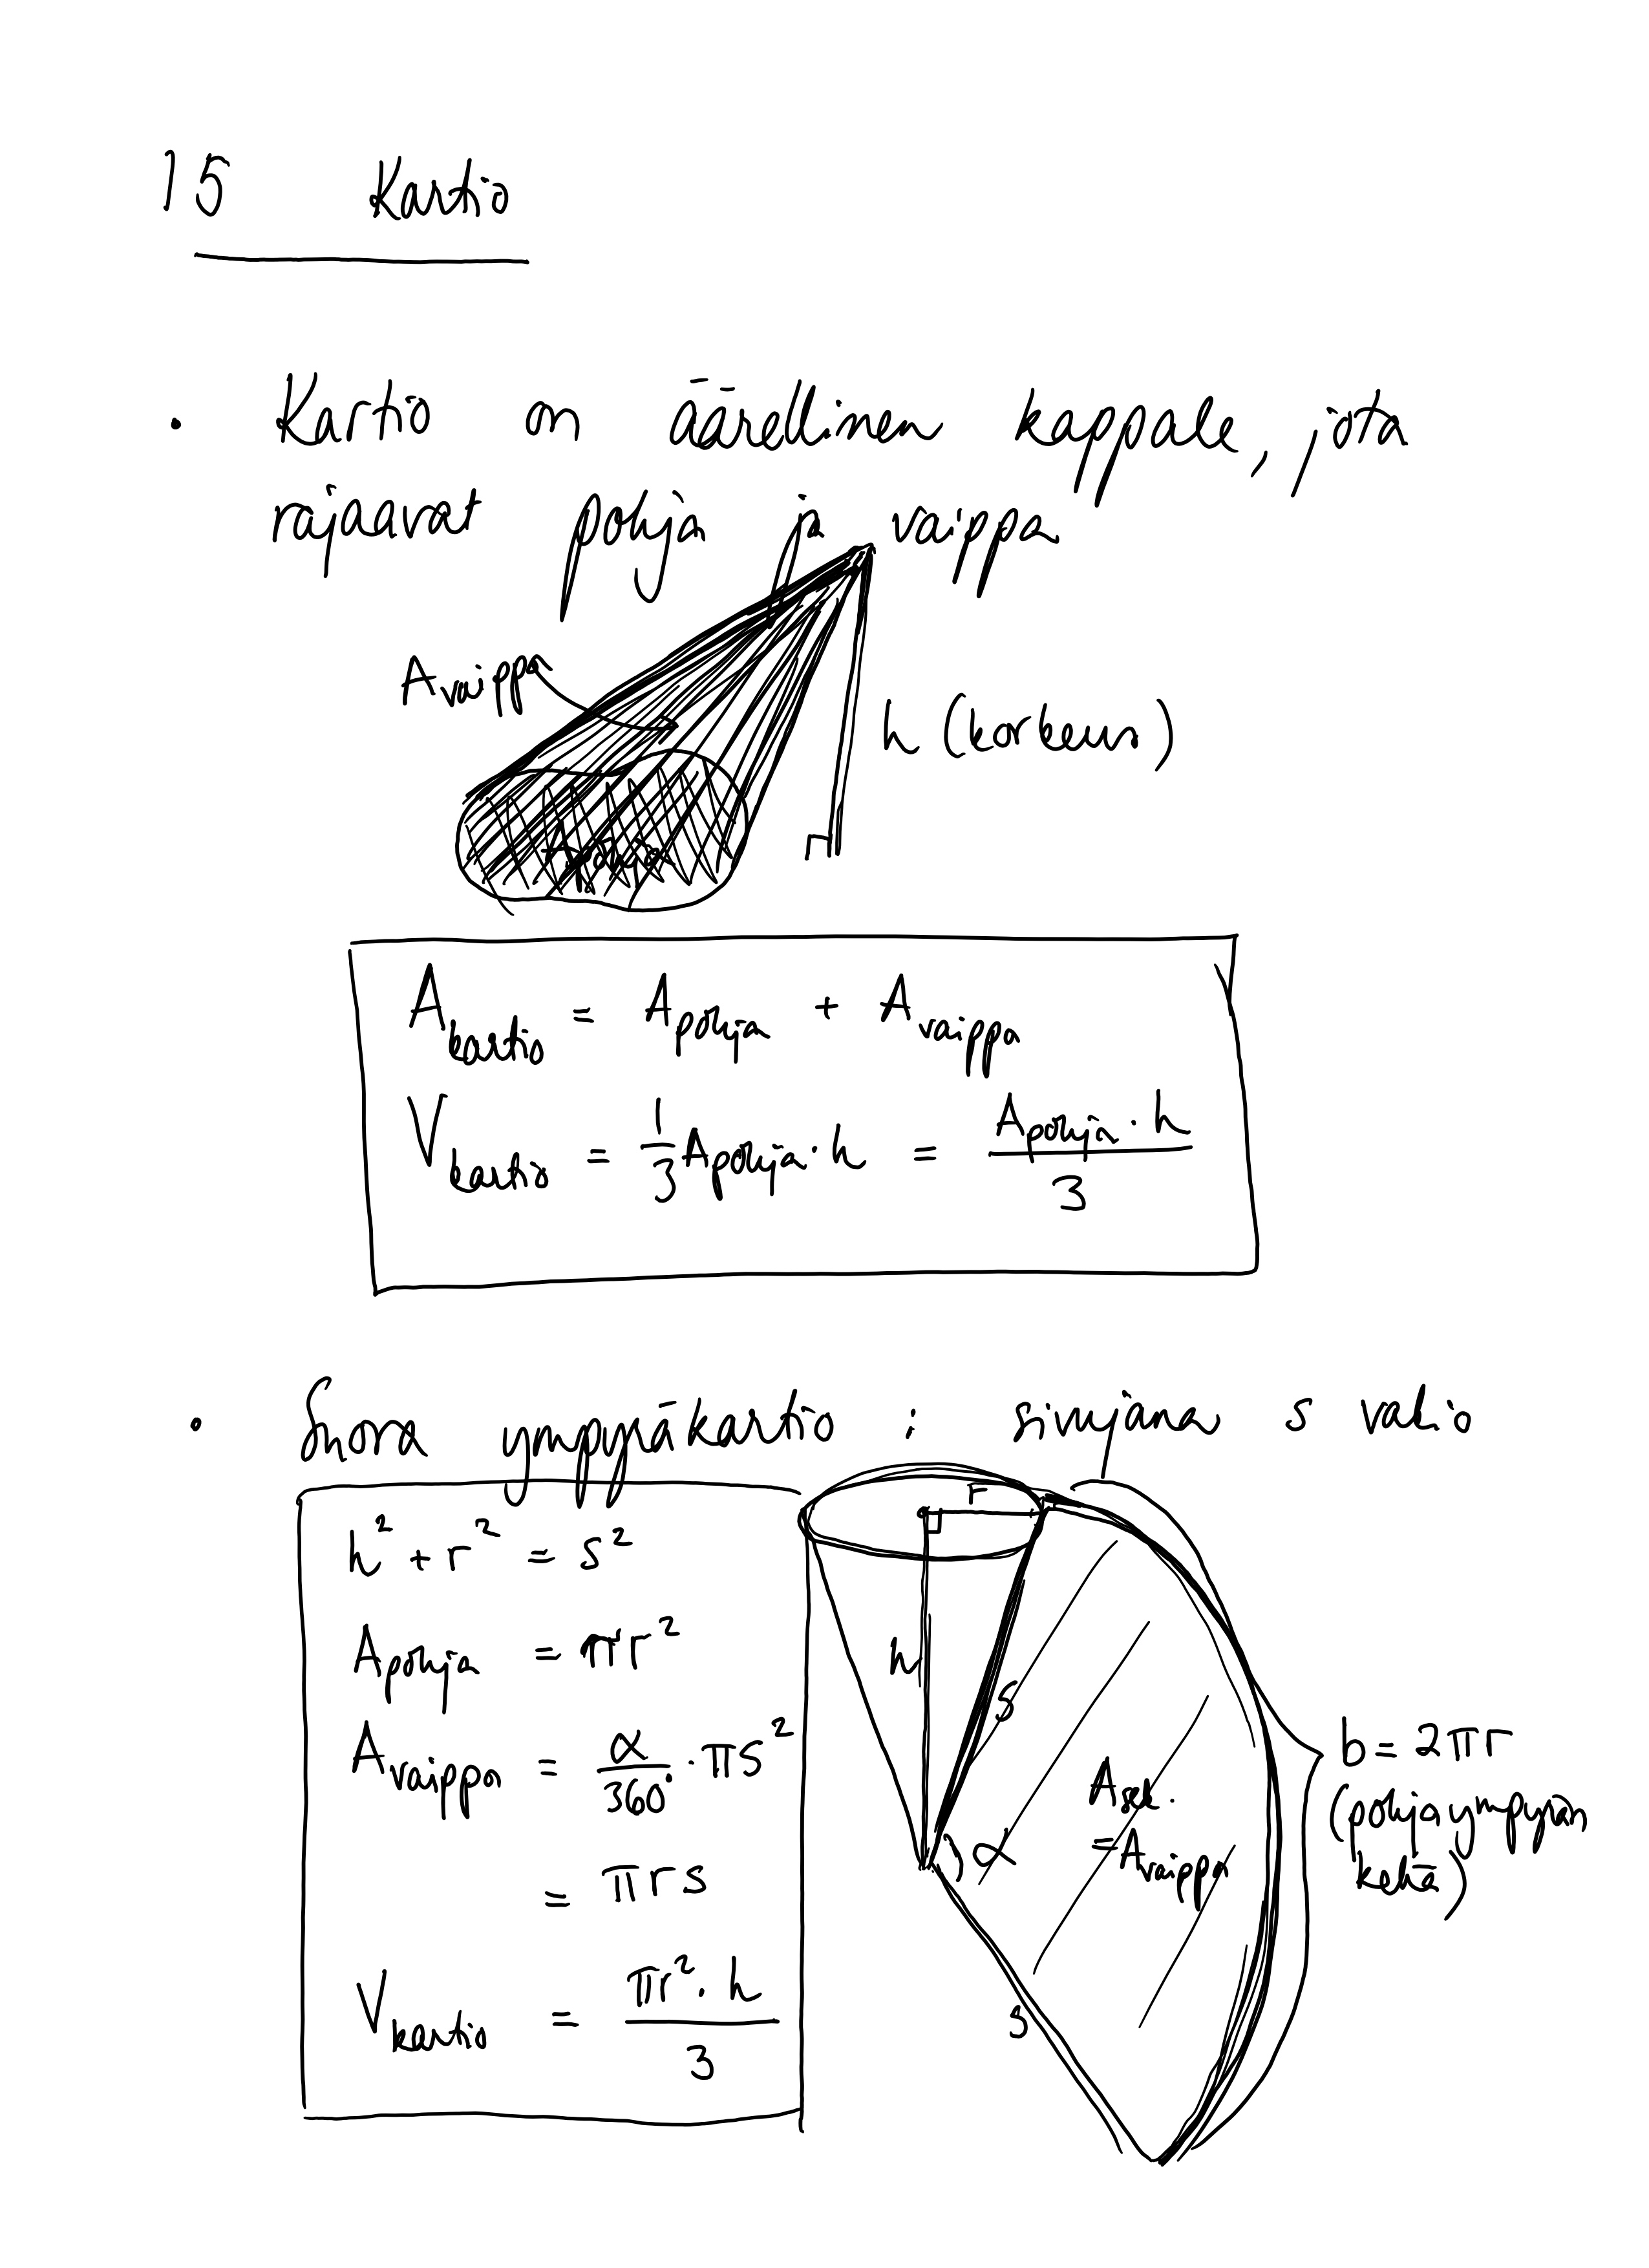 15 Kartio
• Kartio on äärellinen kappale, jota
rajaavat pohja ja vaippa
A_vaippa
h (korkeus)
A_pohja
A_kartio = A_pohja + A_vaippa
V_kartio = 1/3 A_pohja · h = A_pohja · h / 3
• Suora ympyräkartio : sivujana s vakio
h² + r² = s²
A_pohja = πr²
A_vaippa = α/360° · πs²
= πrs
V_kartio = πr² · h / 3
r
h
s
α
A_sek.
= A_vaippa
s
b = 2πr
(pohjaympyrän
kehä)